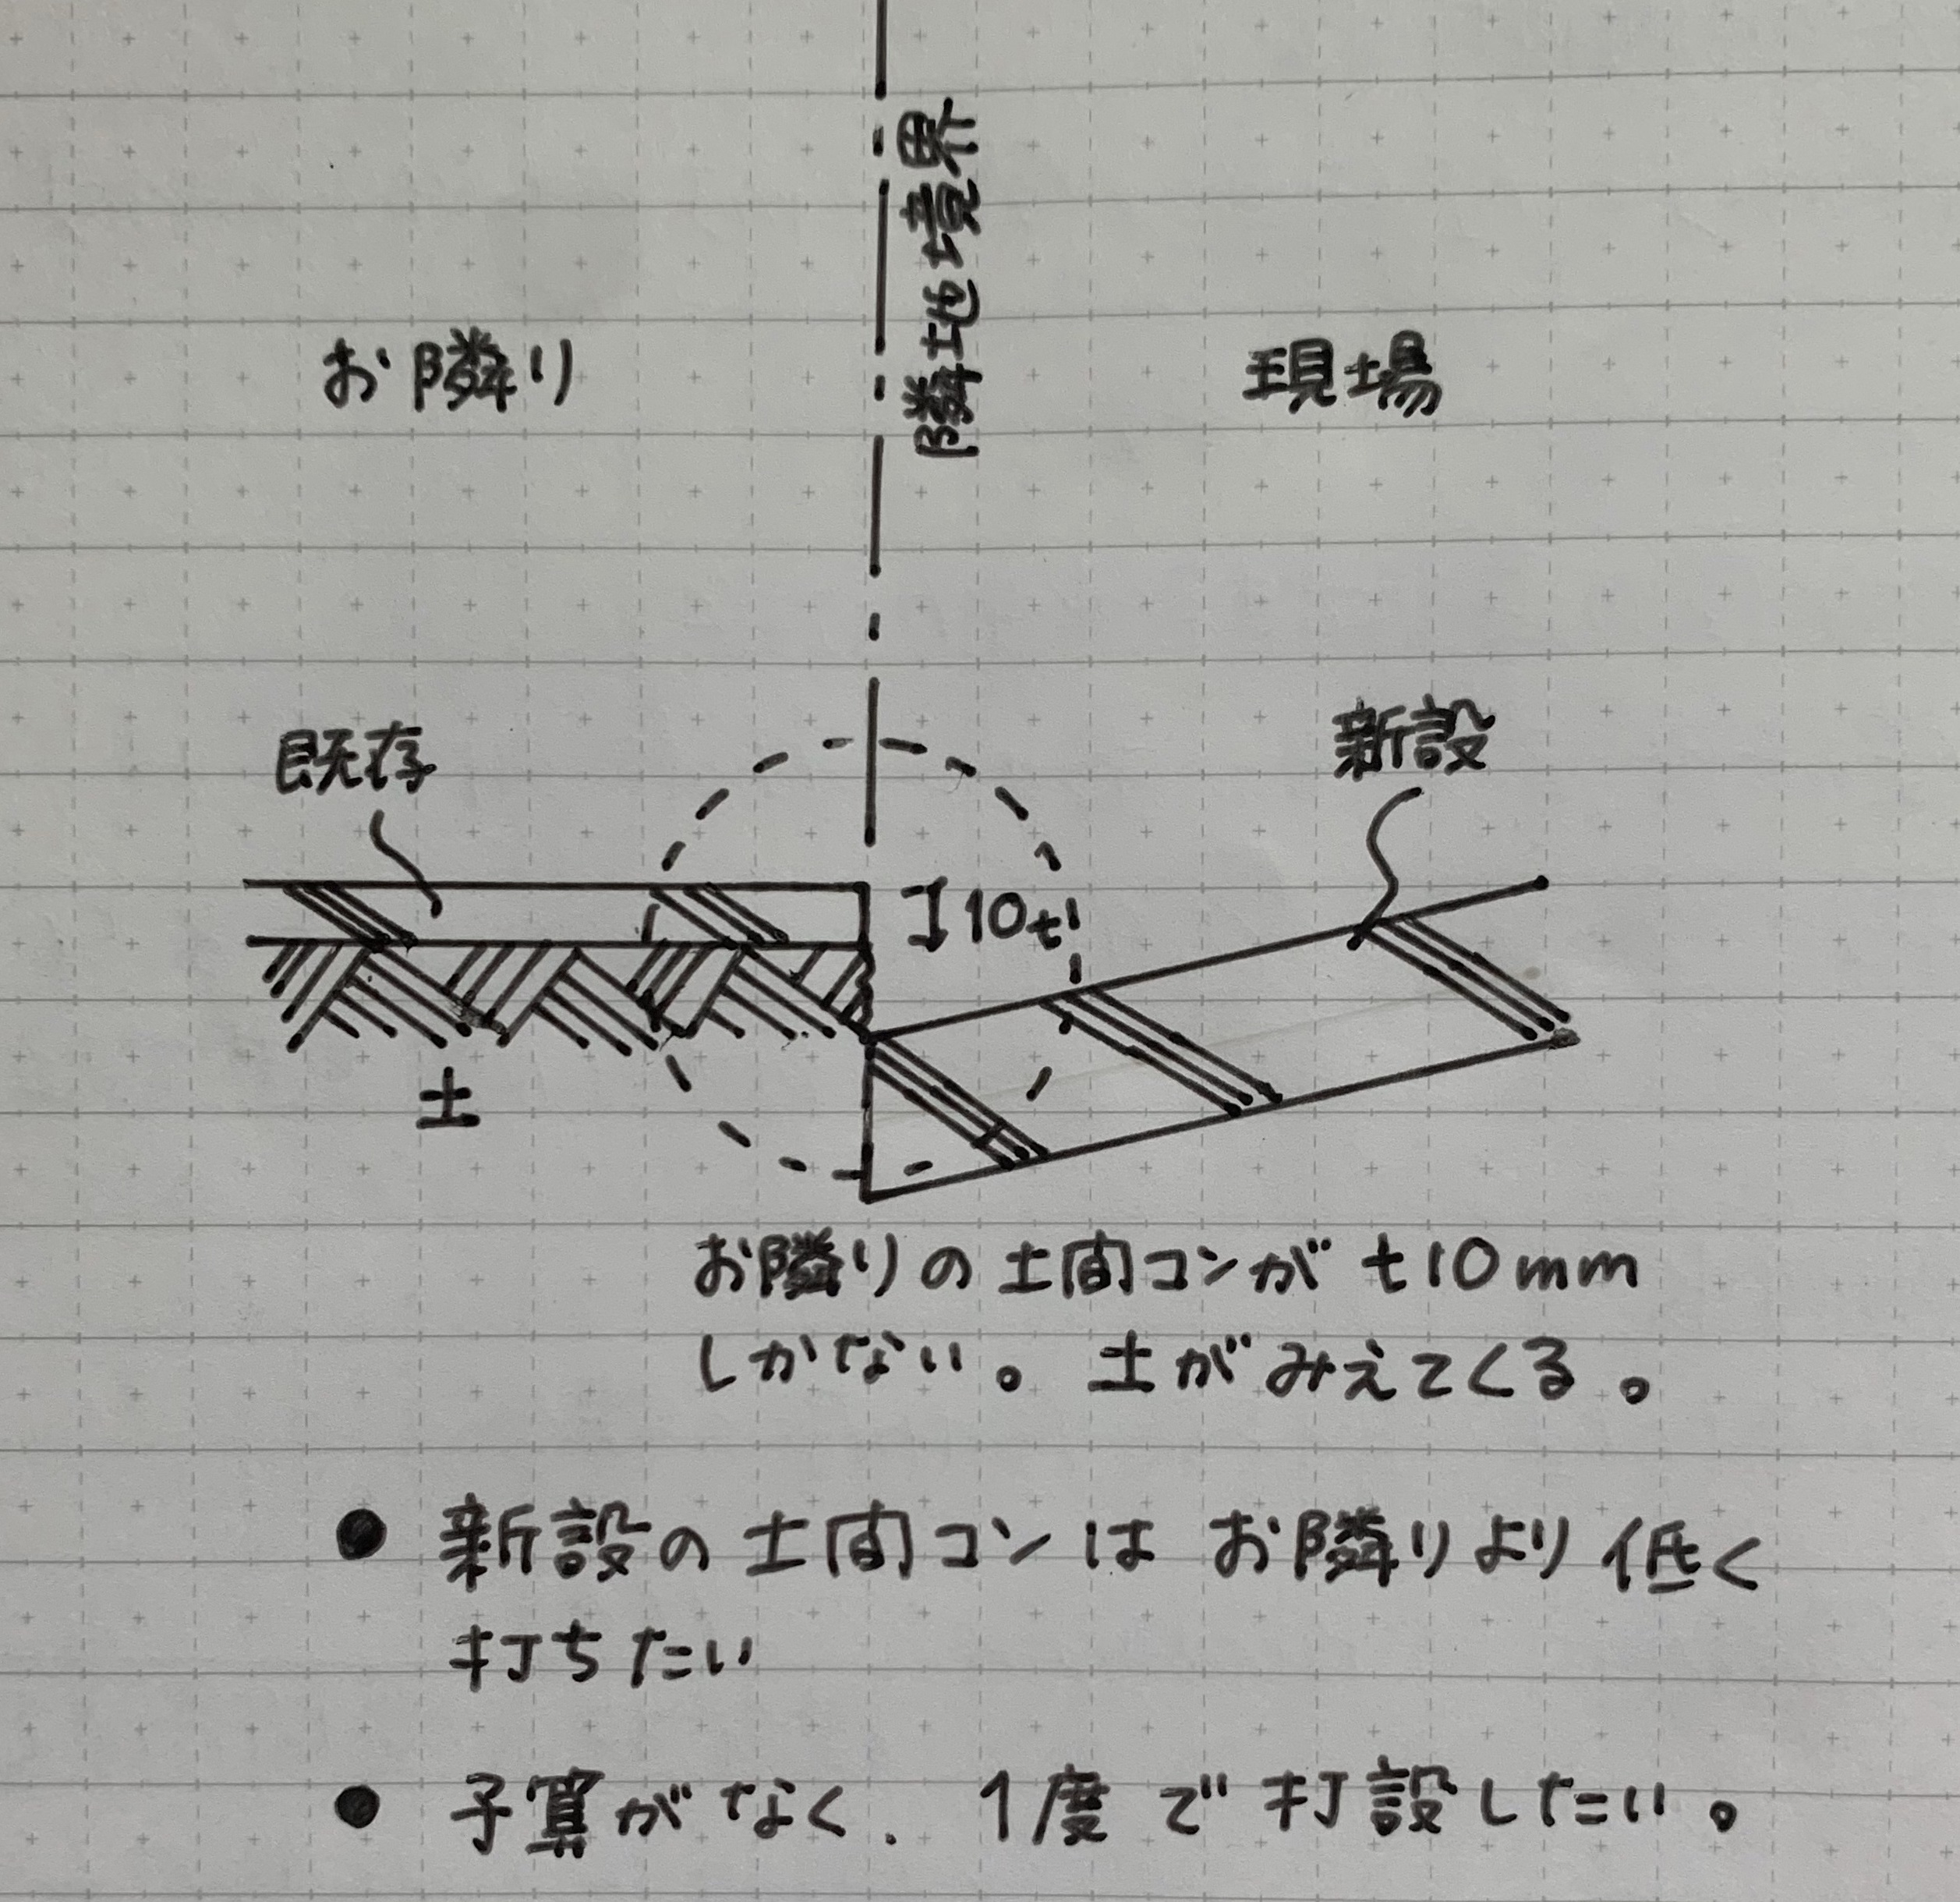 隣地境界
お隣り
現場
既存
新設
10t
土
お隣りの土間コンがt10mm
しかない。土がみえてくる。
● 新設の土間コンはお隣りより低く
打ちたい
● 予算がなく、1度で打設したい。